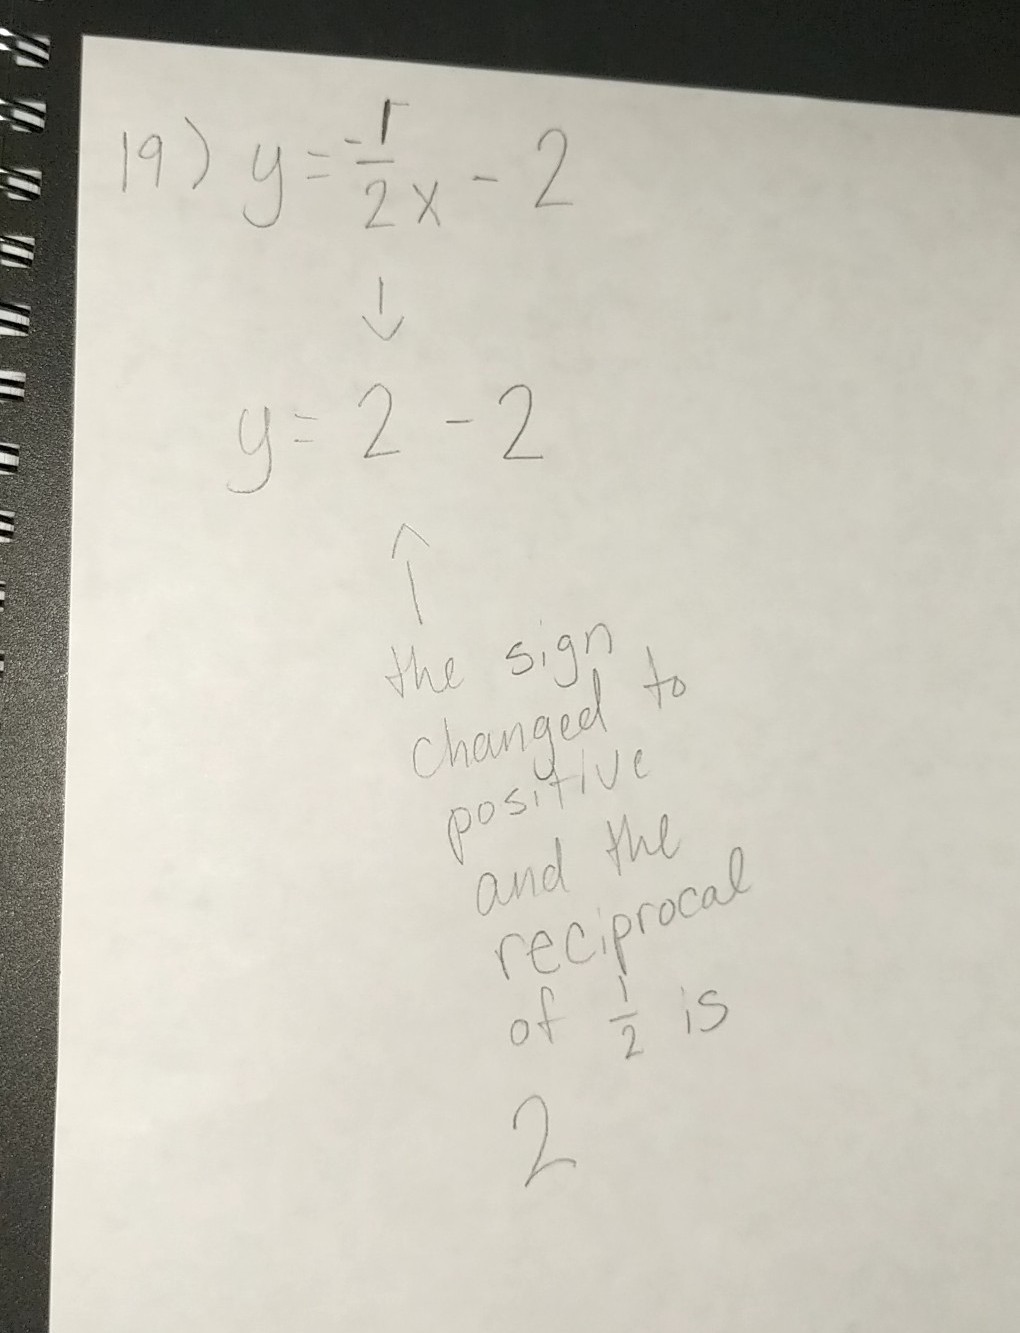 19) y = -1/2 x - 2
↓
y = 2 - 2
↑
the sign
changed to
positive
and the
reciprocal
of 1/2 is
2